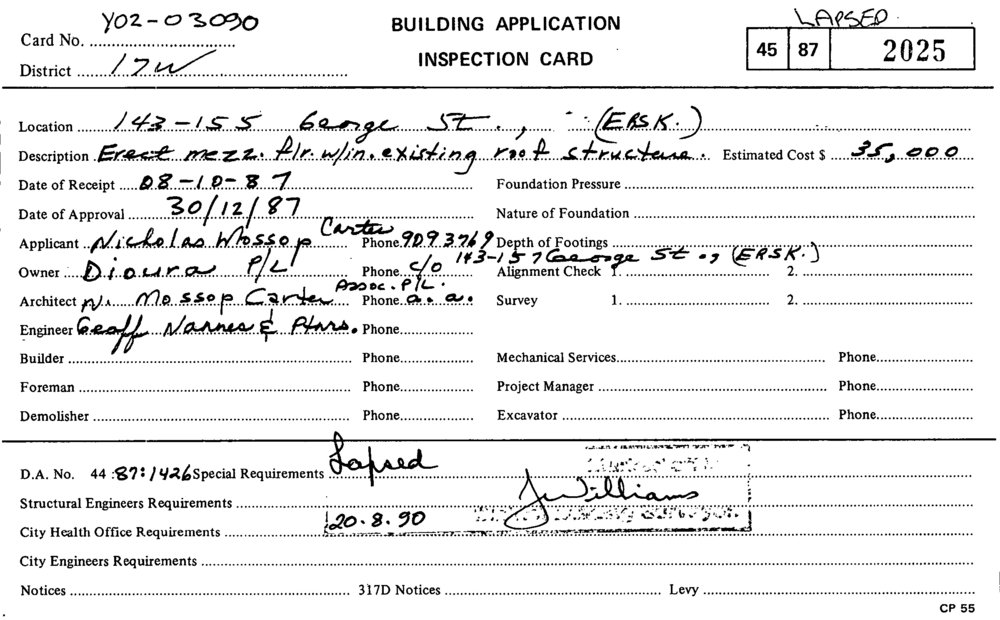 Y02-03090 BUILDING APPLICATION LAPSED
Card No. INSPECTION CARD 45 87 2025
District 17W
Location 143-155 George St., (ERSK.)
Description Erect mezz. flr. w/in. existing roof structure. Estimated Cost $ 35,000
Date of Receipt 08-10-87 Foundation Pressure
Date of Approval 30/12/87 Nature of Foundation
Applicant Nicholas Mossop Carter Phone. 9093769 Depth of Footings
Owner Dioura P/L Phone. c/o 143-157 George St., (ERSK.) Alignment Check 1. 2.
Architect N. Mossop Carter Assoc. P/L. Phone. a.a. Survey 1. 2.
Engineer Geoff & Ptnrs. Phone
Builder Phone Mechanical Services Phone
Foreman Phone Project Manager Phone
Demolisher Phone Excavator Phone
D.A. No. 44:87:1426 Special Requirements Lapsed
Structural Engineers Requirements J Williams
City Health Office Requirements 20.8.90
City Engineers Requirements
Notices 317D Notices Levy
CP 55